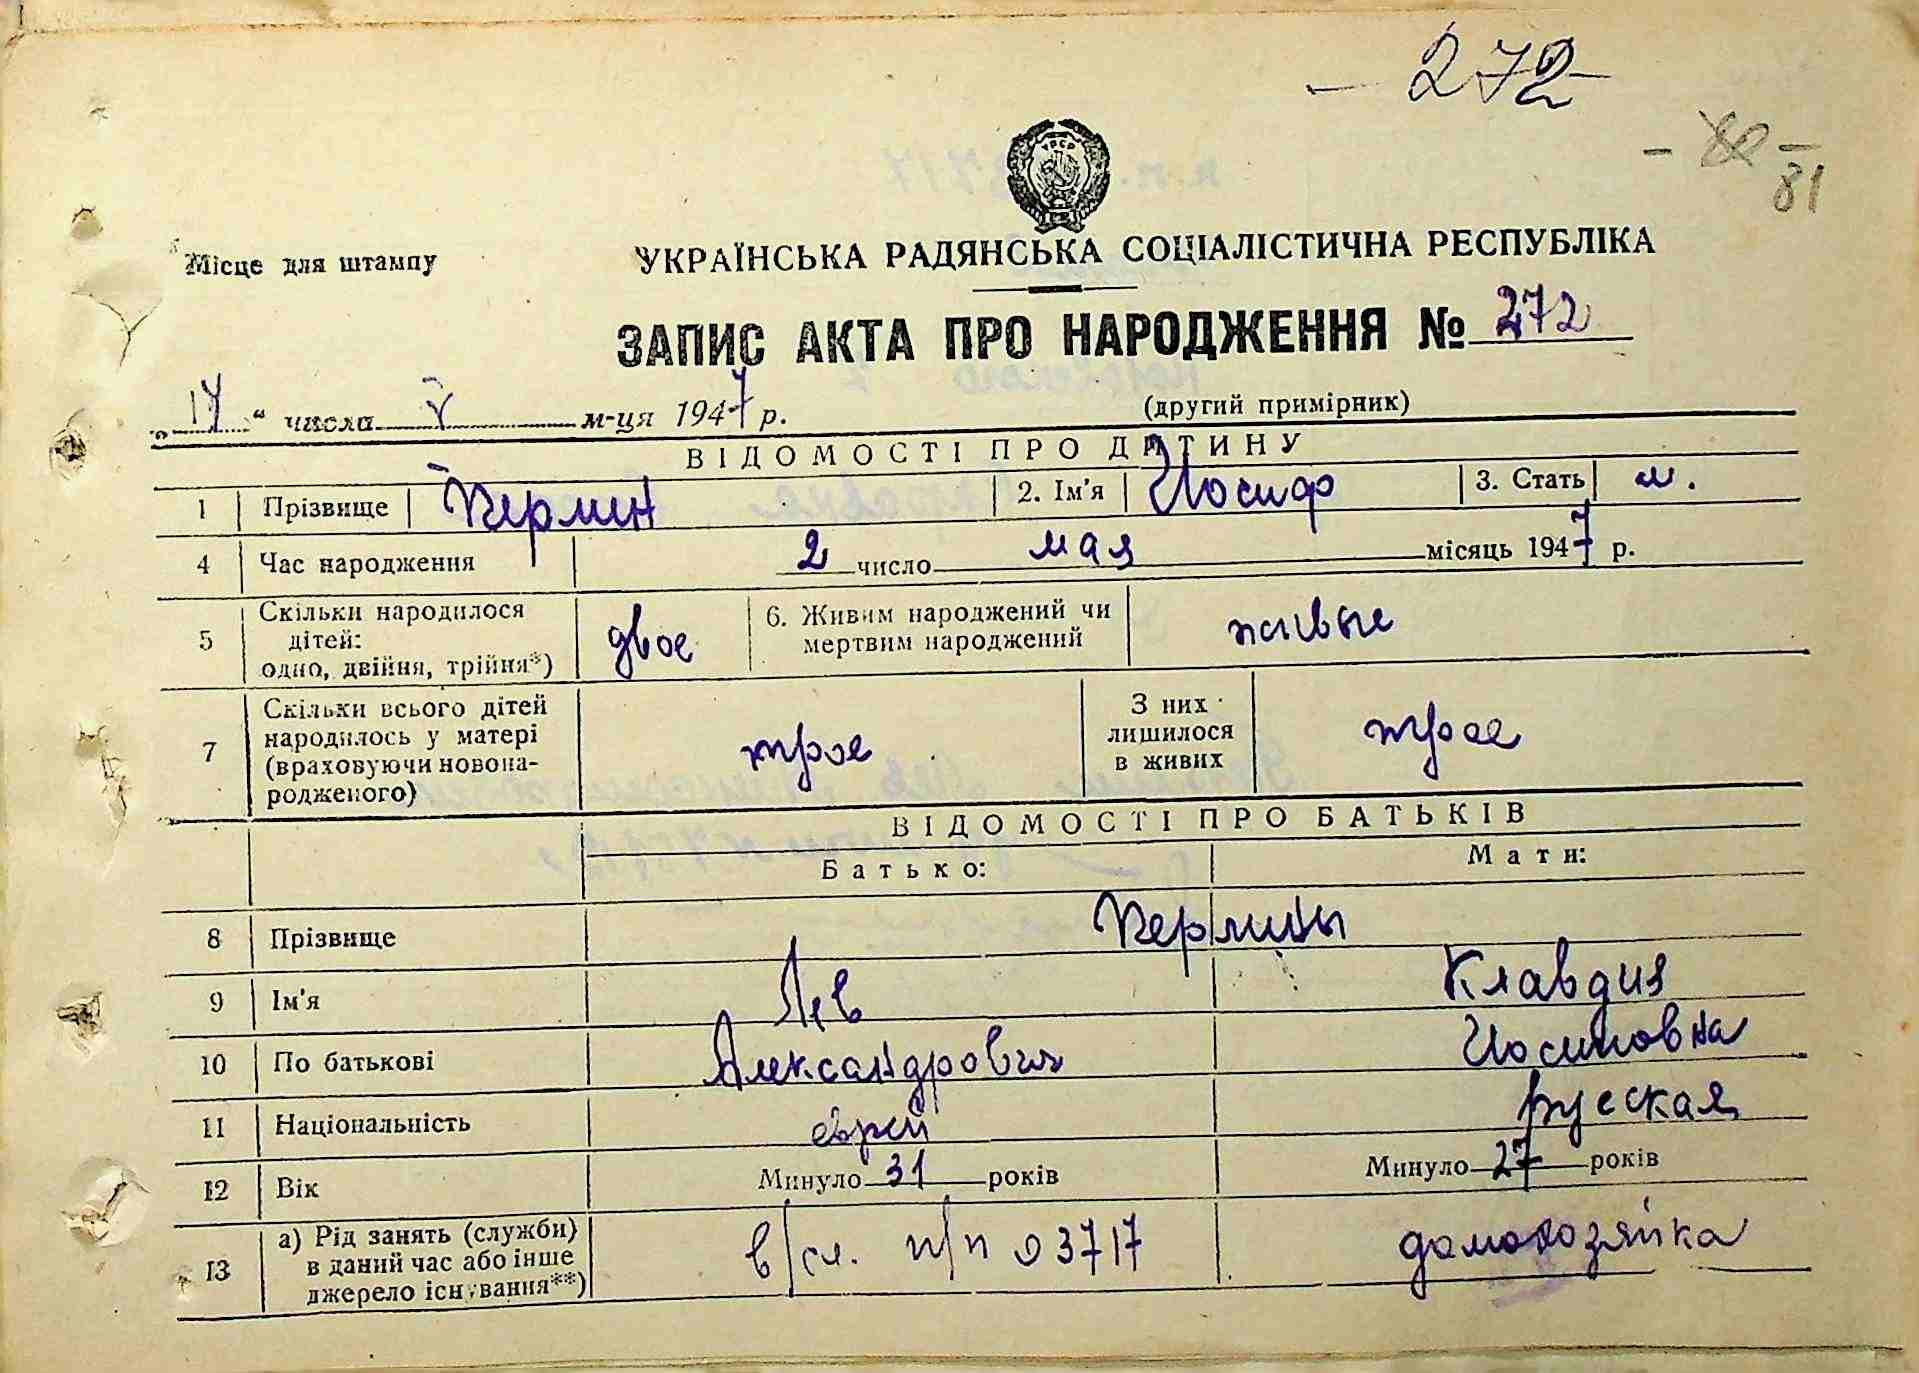 - 272 -
- 80 -
81
УРСР
Місце для штампу
УКРАЇНСЬКА РАДЯНСЬКА СОЦІАЛІСТИЧНА РЕСПУБЛІКА
ЗАПИС АКТА ПРО НАРОДЖЕННЯ № 272
„17“ числа V м-ця 1947 р.
(другий примірник)
ВІДОМОСТІ ПРО ДИТИНУ
1 Прізвище Перлин 2. Ім'я Иосиф 3. Стать м.
4 Час народження 2 число мая місяць 1947 р.
5 Скільки народилося дітей: одно, двійня, трійня*) двое 6. Живим народжений чи мертвим народжений живые
7 Скільки всього дітей народилось у матері (враховуючи новонародженого) трое З них лишилося в живих трое
ВІДОМОСТІ ПРО БАТЬКІВ
Батько: Мати:
8 Прізвище Перлины
9 Ім'я Лев Клавдия
10 По батькові Александрович Иосиповна
11 Національність еврей русская
12 Вік Минуло 31 років Минуло 27 років
13 а) Рід занять (служби) в даний час або інше джерело існування**) в/сл. п/п 03717 домохозяйка